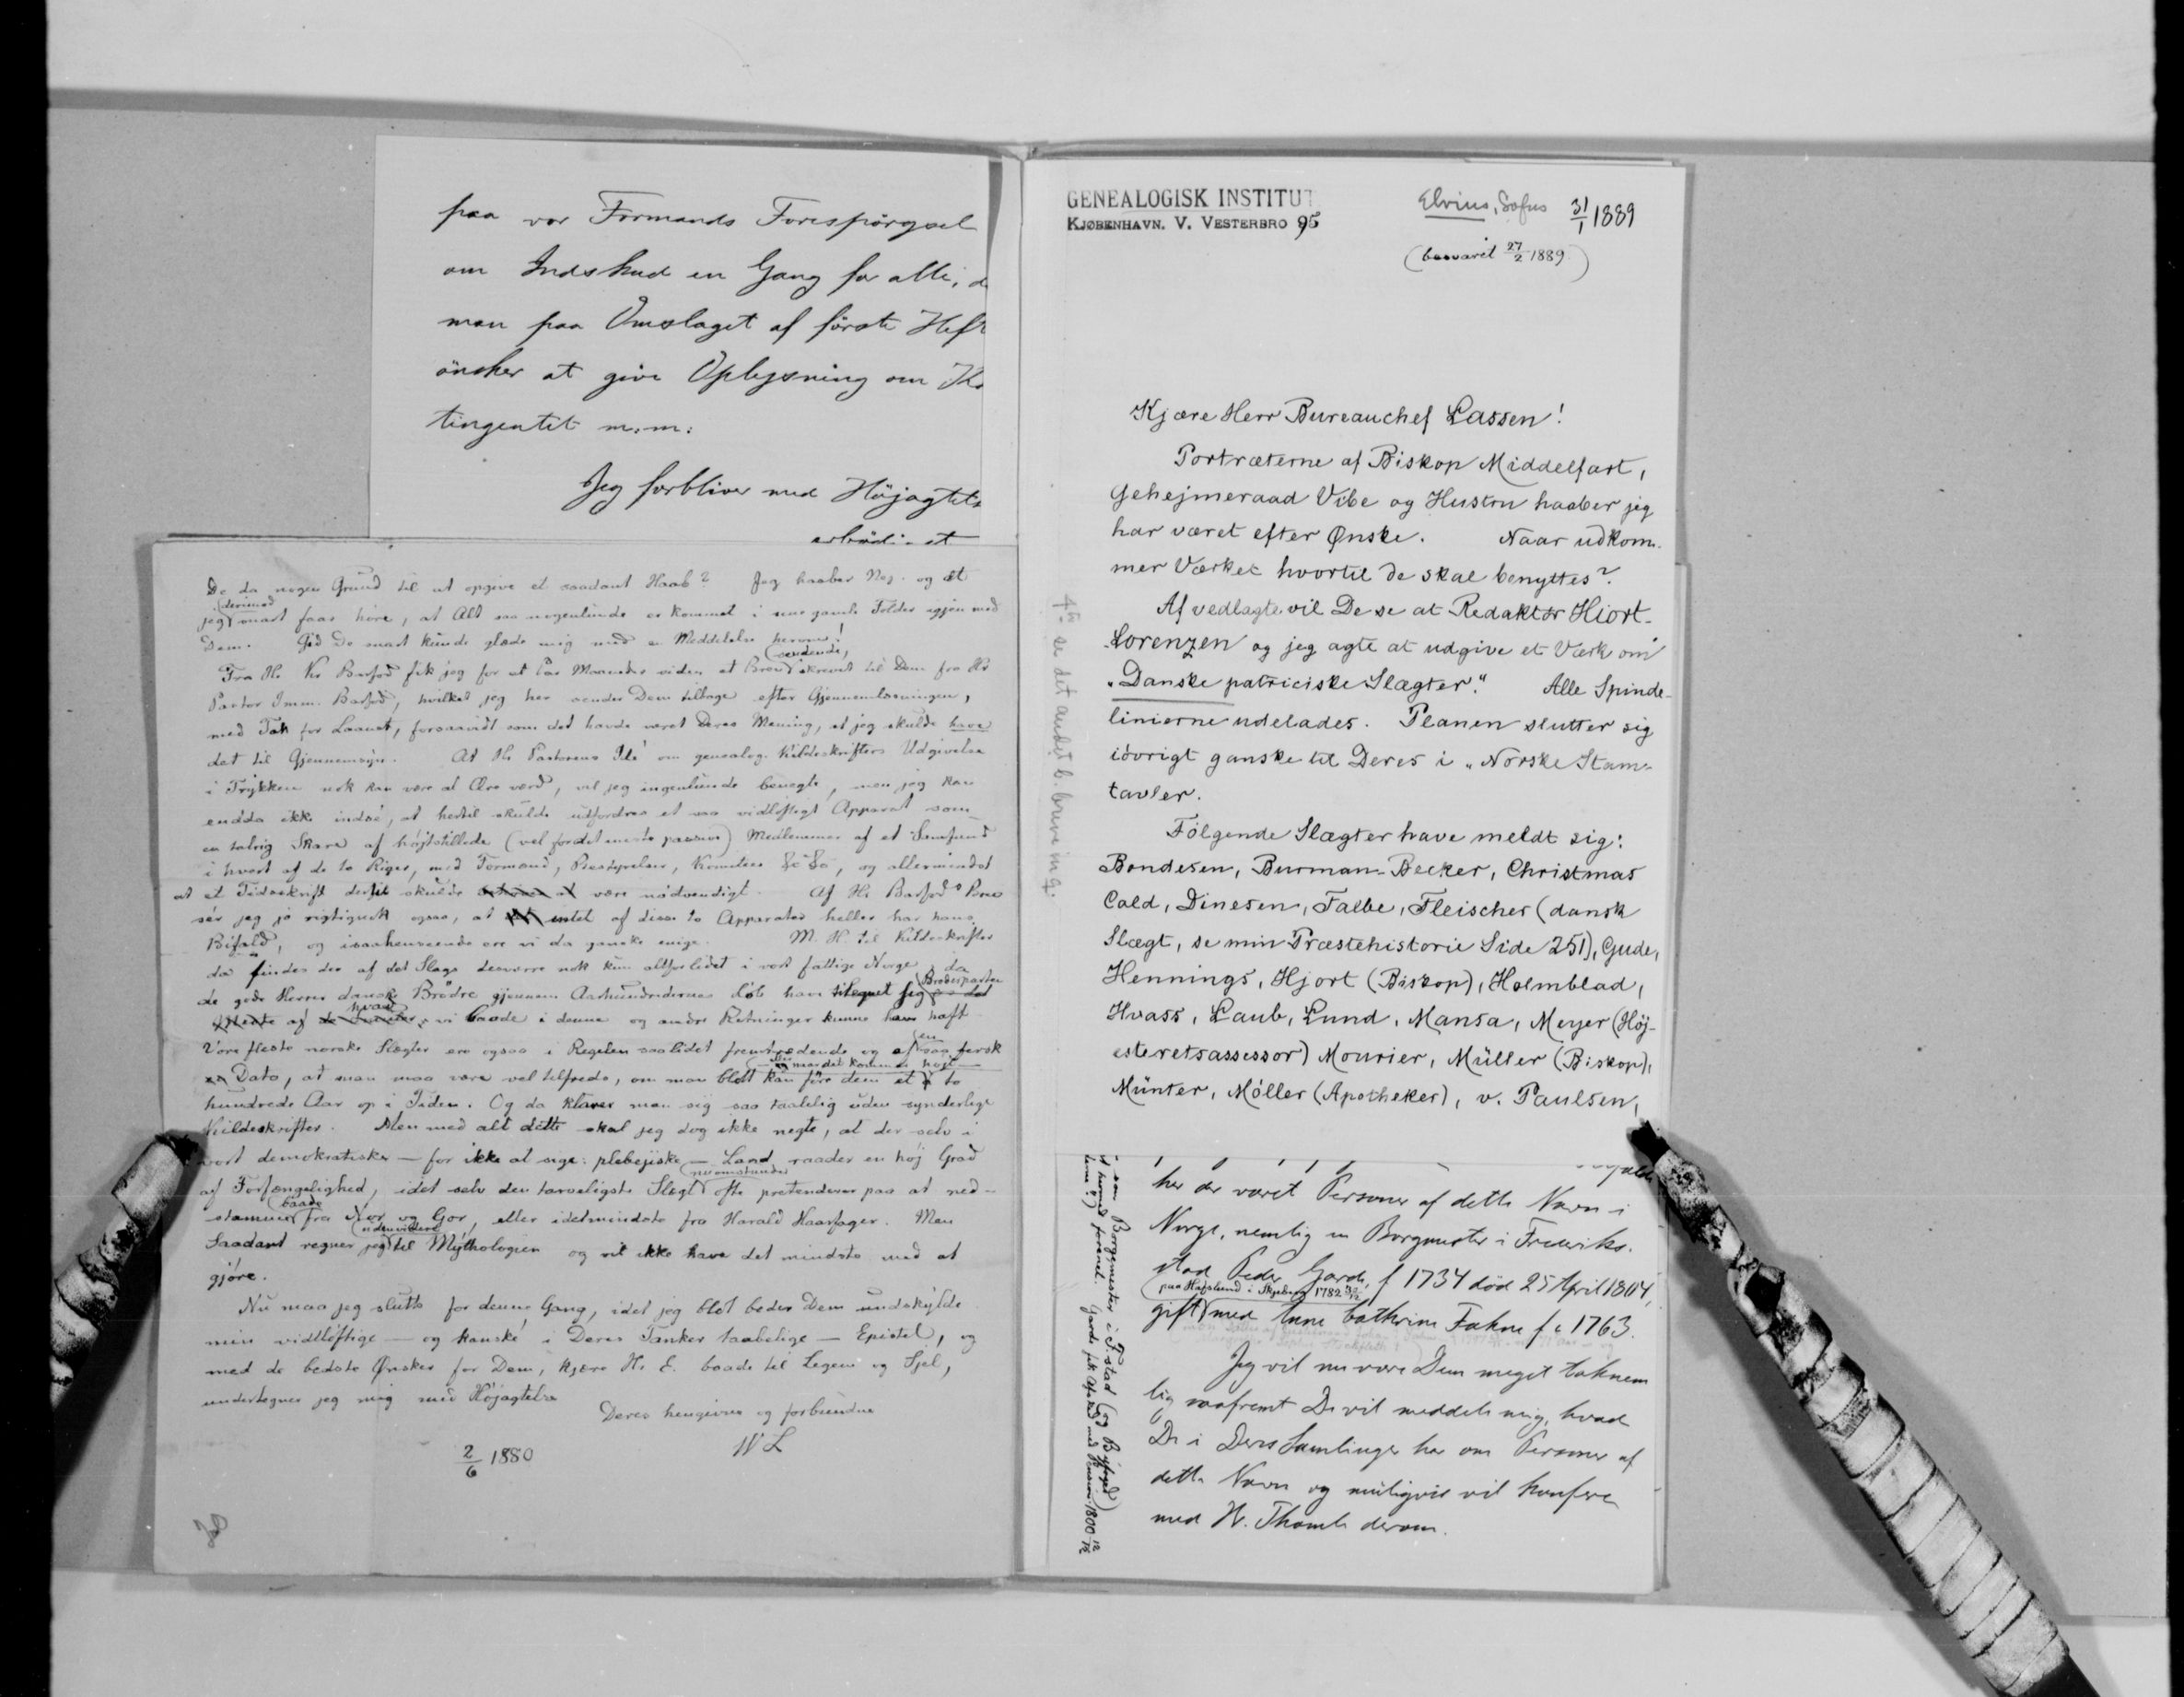 paa vor Formands Forespörgsel
om Indskud en Gang for alle, d
man paa Omslaget af förste Heft
önsker at give Oplysning om Ko
tingentet m.m.
Jeg forbliver med Höjagtels
De da nogen Grund til at opgive et saadant Haab? Jeg haaber Nej. og at
jeg (derimod) snart faar höre, at Alt saa nogenlunde er kommet i sine gamle Folder igjen med
Dem. Gid De snart kunde glæde mig med en Meddelelse herom!
Fra Hr. Kr. Barfod fik jeg for et Par Maaneder siden et Brev (sendende), skrevet til Dem fra Hr
Pastor Imm. Barfod, hvilket jeg her sender Dem tilbage efter Gjennemlæsningen,
med Tak for Laanet, forsaavidt som det havde været Deres Mening, at jeg skulde have
det til Gjennemsyn. At Hr. Pastorens Idé om genealog. Kildeskrifters Udgivelse
i Trykken nok kan være al Ære værd, vil jeg ingenlunde benegte, men jeg kan
endda ikke indsé, at hertil skulde udfordres et saa vidløftigt Apparat som
en talrig Skare af højtstillede (vel for det meste passive) Medlemmer af et Samfund
i hvert af de to Riger, med Formand, Bestyrelser, Komiteer &c &c, og allermindst
at et Tidsskrift dertil skulde være nödvendigt. Af Hr. Barfods Brev
sér jeg jo rigtignok ogsaa, at intet af disse to Apparater heller har hans
Bifald, og isaahenseende ere vi da ganske enige. M. H. til Kildeskrifter
da findes der af det Slags desværre nok kun altfor lidet i vort fattige Norge, da
de gode Herrer danske Brödre gjennem Aarhundredernes Löb have tilegnet sig Brodersparten
af hvad vi baade i denne og andre Retninger kunne have haft.
Vore fleste norske Slægter ere ogsaa i Regelen saa lidet fremtrædende og af en saa fersk
Dato, at man maa være vel tilfreds, om man blot (— naar det kommer højt —) kan före dem et à to
hundrede Aar op i Tiden. Og da klarer man sig saa taalelig uden synderlige
Kildeskrifter. Men med alt dette skal jeg dog ikke negte, at der selv i
vort demokratiske — for ikke at sige: plebejiske — Land raader en höj Grad
af Forfængelighed, idet selv den tarveligste Slægt (nuomstunder) ofte pretenderer paa at ned-
stamme (baade) fra Nor og Gor, eller idetmindste fra Harald Haarfager. Men
Saadant regner jeg (udenvidere) til Mythologien og vil ikke have det mindste med at
gjöre.
Nu maa jeg slutte for denne Gang, idet jeg blot beder Dem undskylde
min vidtlöftige — og kanské i Deres Tanker taabelige — Epistel, og
med de bedste Ønsker for Dem, kjære Hr. E. baade til Legeme og Sjel,
undertegner jeg mig med Höjagtelse
Deres hengivne og forbundne
W L
2/6 1880
GENEALOGISK INSTITUT
KJØBENHAVN. V. VESTERBRO 95
Elvius, Sofus 31/1 1889
(besvaret 27/2 1889)
Kjære Herr Bureauchef Lassen!
Portræterne af Biskop Middelfart,
Gehejmeraad Vibe og Hustru haaber jeg
har været efter Ønske. Naar udkom-
mer Værket hvortil de skal benyttes?
Af vedlagte vil De se at Redaktör Hiort-
Lorenzen og jeg agte at udgive et Værk om
"Danske patriciske Slægter." Alle Spinde-
linierne udelades. Planen slutter sig
iövrigt ganske til Deres i "Norske Stam-
tavler.
Fölgende Slægter have meldt sig:
Bondesen, Burman-Becker, Christmas
Cold, Dinesen, Falbe, Fleischer (dansk
Slægt, se min Præstehistorie Side 251), Gude,
Hennings, Hjort (Biskop), Holmblad,
Hvass, Laub, Lund, Mansa, Meyer (Höj-
esteretsassessor) Mourier, Müller (Biskop),
Münter, Möller (Apotheker), v. Paulsen,
her der været Personer af dette Navn i
Norge, nemlig en Borgmester i Frederiks-
stad Peder Garde, f 1734 död 25 April 1804,
(paa Hafslund i Skjeberg 1782
gift med Anne Cathrine Fahne f c 1763.
Jeg vil nu være Dem meget taknem
lig saafremt De vil meddele mig, hvad
De i Deres Samlinger har om Personer af
dette Navn og muligvis vil konfere
med Hr. Thomle derom.
som Borgmester i F.stad (og Byfoged)